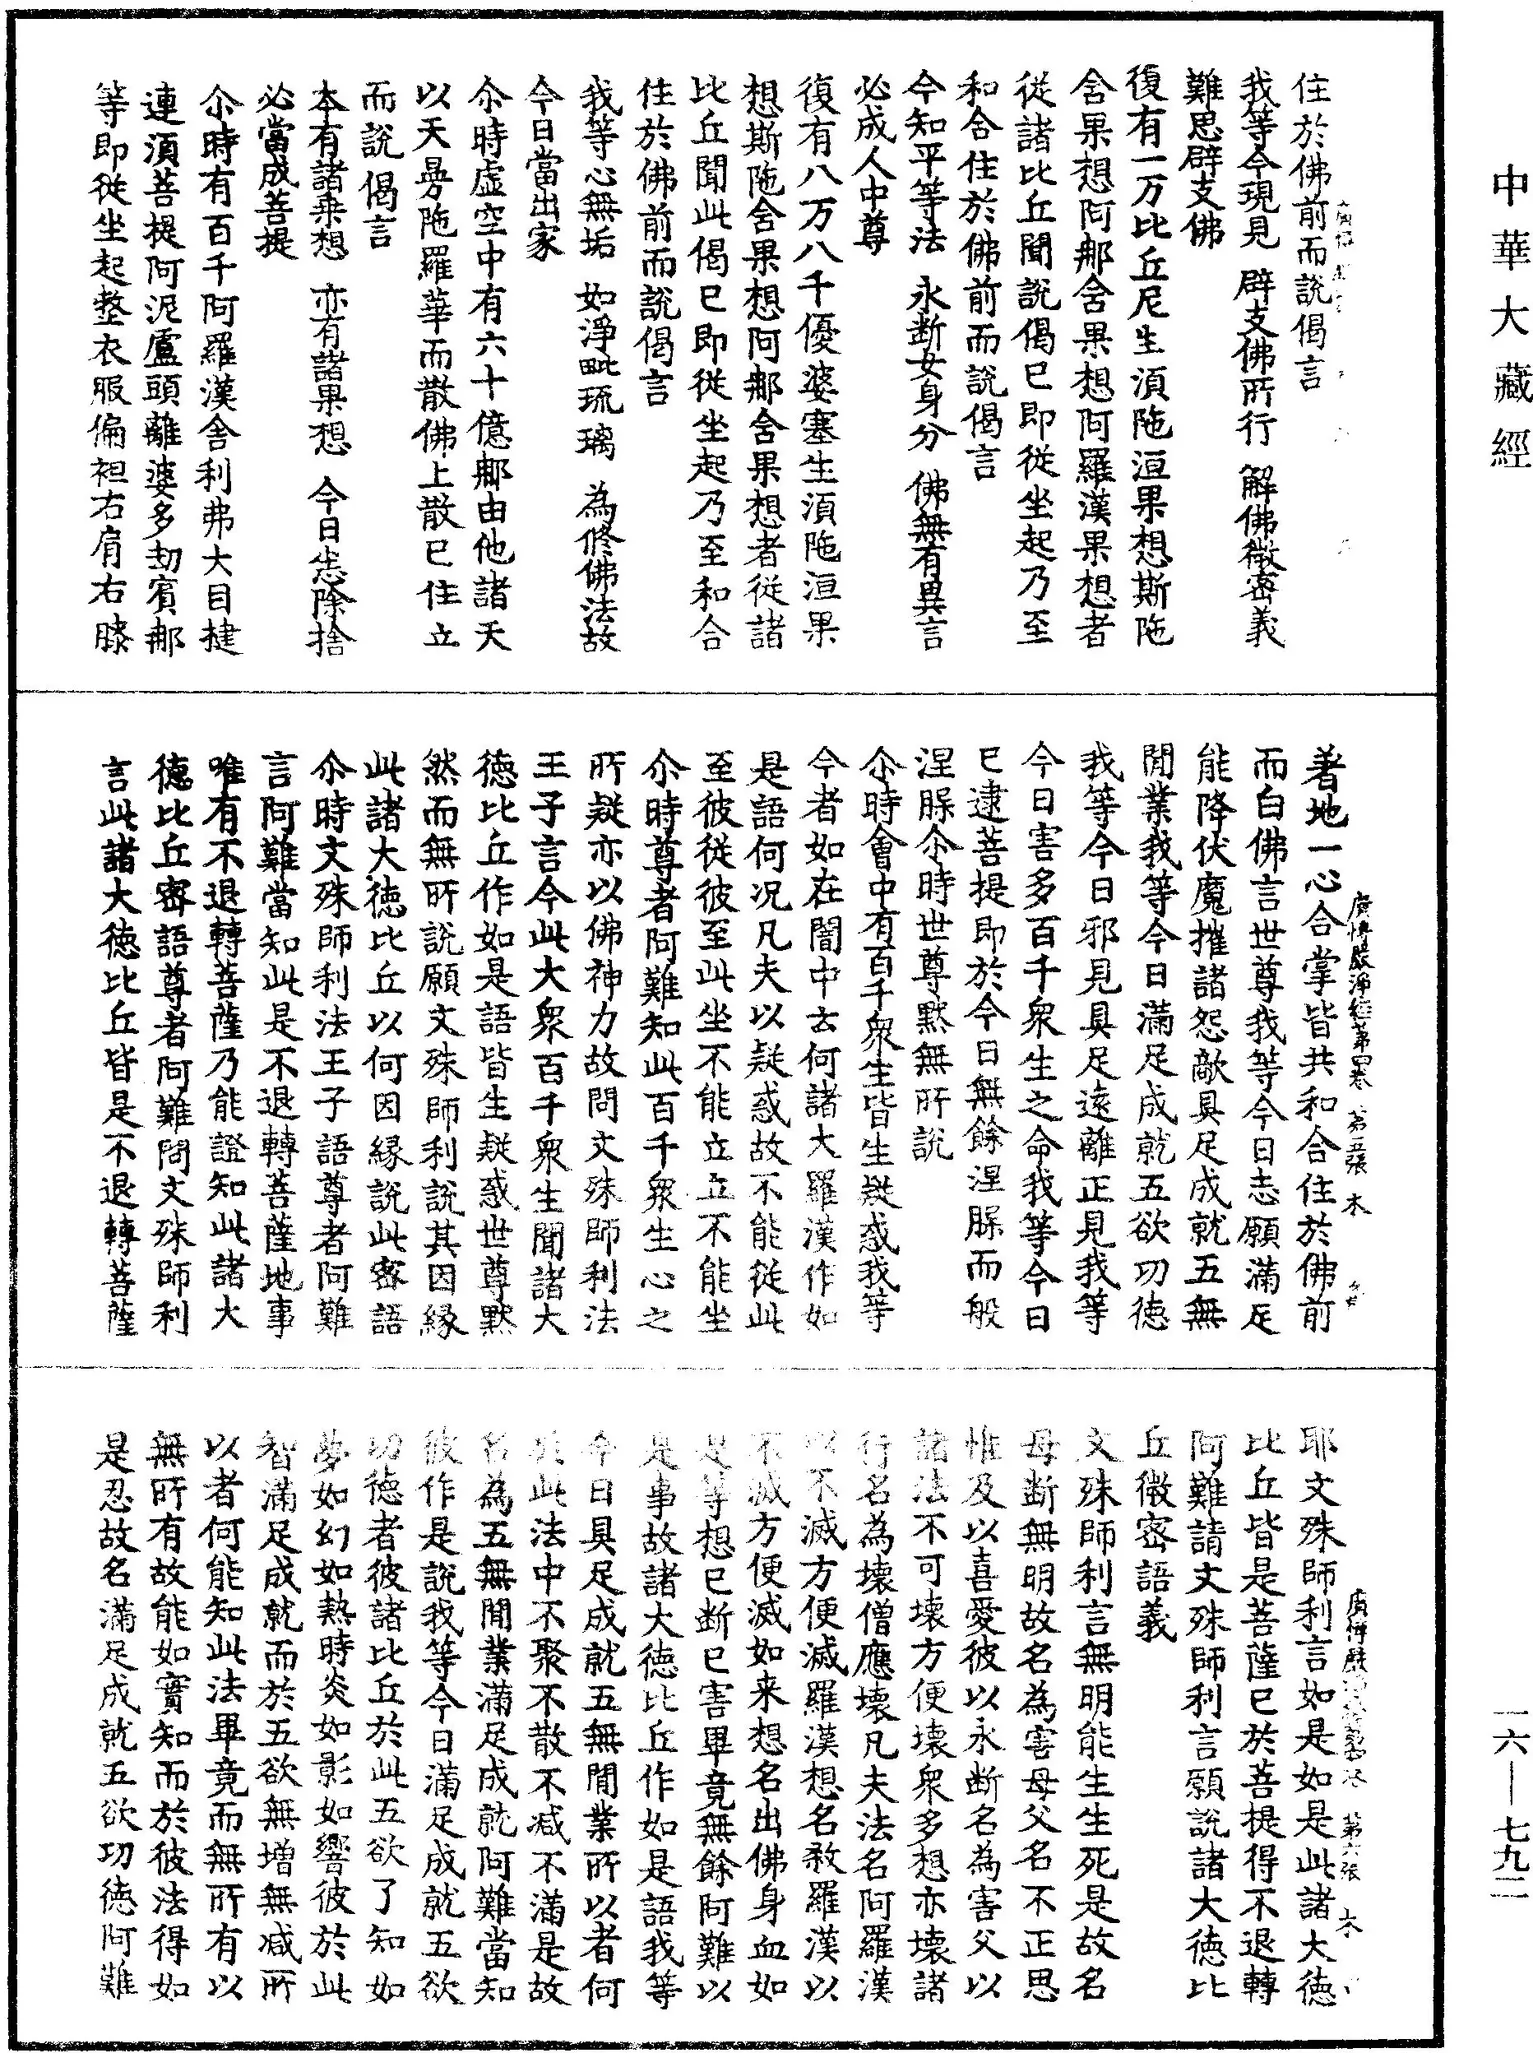 中華大藏經
住於佛前而說偈言
我等今現見　辟支佛所行　解佛微密義
難思辟支佛
復有一万比丘尼生湏陁洹果想斯陁
含果想阿那含果想阿羅漢果想者
從諸比丘聞說偈已即從坐起乃至
和合住於佛前而說偈言
今知平等法　永斷女身分　佛無有異言
必成人中尊
復有八万八千優婆塞生湏陁洹果
想斯陁含果想阿那含果想者從諸
比丘聞此偈已即從坐起乃至和合
住於佛前而說偈言
我等心無垢　如淨毗琉璃　為修佛法故
今日當出家
尒時虛空中有六十億那由他諸天
以天曼陁羅華而散佛上散已住立
而說偈言
本有諸乘想　亦有諸果想　今日悉除捨
必當成菩提
尒時有百千阿羅漢舍利弗大目揵
連湏菩提阿泥盧頭離婆多劫賓那
等即從坐起整衣服偏袒右肩右膝
廣博嚴淨經第四卷　第五張　木
著地一心合掌皆共和合住於佛前
而白佛言世尊我等今日志願滿足
能降伏魔摧諸怨敵具足成就五無
閒業我等今日滿足成就五欲功德
我等今日邪見具足遠離正見我等
今日害多百千衆生之命我等今日
已逮菩提即於今日無餘涅脲而般
涅脲尒時世尊默無所說
尒時會中有百千衆生皆生疑惑我等
今者如在闇中去何諸大羅漢作如
是語何況凡夫以疑惑故不能從此
至彼從彼至此坐不能立立不能坐
尒時尊者阿難知此百千衆生心之
所疑亦以佛神力故問文殊師利法
王子言今此大衆百千衆生聞諸大
德比丘作如是語皆生疑惑世尊默
然而無所說願文殊師利說其因緣
此諸大德比丘以何因緣說此密語
尒時文殊師利法王子語尊者阿難
言阿難當知此是不退轉菩薩地事
唯有不退轉菩薩乃能證知此諸大
德比丘密語尊者阿難問文殊師利
言此諸大德比丘皆是不退轉菩薩
第六張　木
耶文殊師利言如是如是此諸大德
比丘皆是菩薩已於菩提得不退轉
阿難請文殊師利言願說諸大德比
丘微密語義
文殊師利言無明能生生死是故名
母斷無明故名為害母父名不正思
惟及以喜愛彼以永斷名為害父以
諸法不可壞方便壞衆多想亦壞諸
行名為壞僧應壞凡夫法名阿羅漢
以不滅方便滅羅漢想名煞羅漢以
不滅方便滅如来想名出佛身血如
是等想已斷已害畢竟無餘阿難以
是事故諸大德比丘作如是語我等
今日具足成就五無閒業所以者何
於此法中不聚不散不減不滿是故
名為五無閒業滿足成就阿難當知
彼作是說我等今日滿足成就五欲
功德者彼諸比丘於此五欲了知如
夢如幻如熱時炎如影如響彼於此
智滿足成就而於五欲無增無減所
以者何能知此法畢竟而無所有以
無所有故能如實知而於彼法得如
是忍故名滿足成就五欲功德阿難
一六—七九二